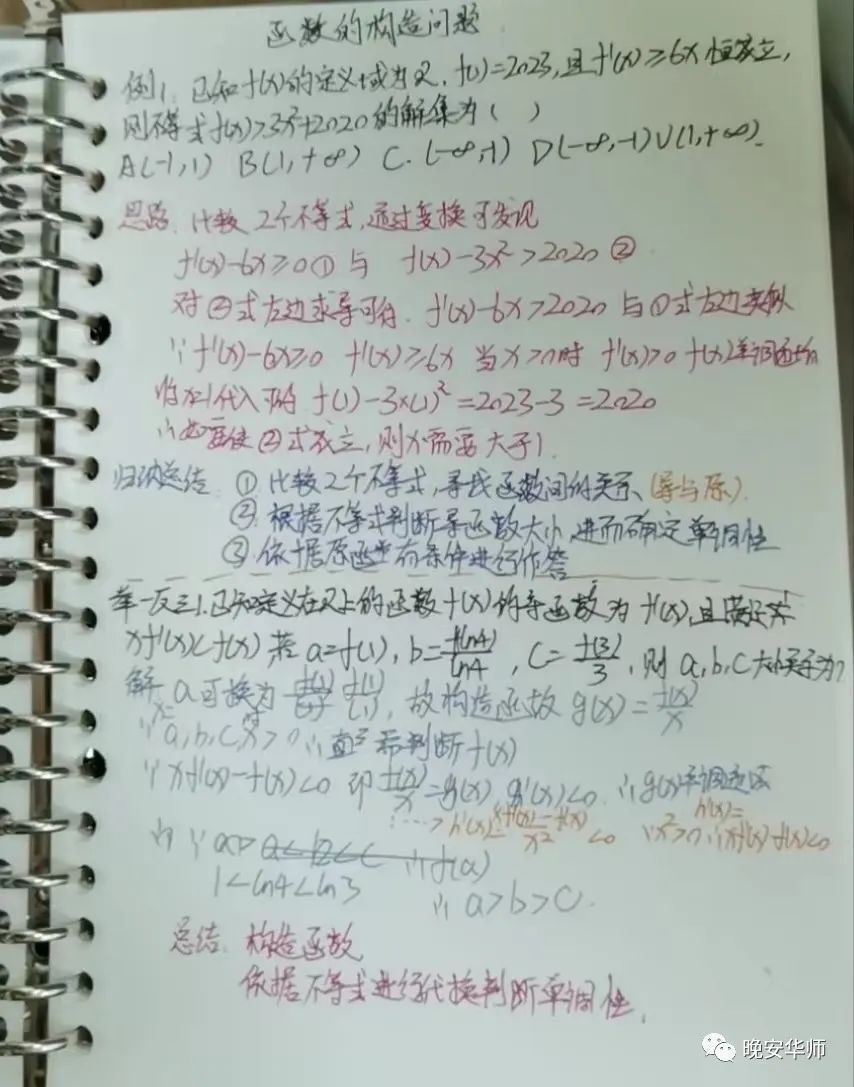 函数的构造问题
例1. 已知f(x)的定义域为R, f(1)=2023, 且f'(x)≥6x恒成立,
则不等式f(x)>3x²+2020的解集为( )
A(-1,1) B(1,+∞) C.(-∞,-1) D(-∞,-1)∪(1,+∞).
思路. 比较2个不等式, 通过变换可发现
f'(x)-6x≥0① 与 f(x)-3x²>2020②
对②式左边求导可得. f'(x)-6x>2020与①式左边类似
∵f'(x)-6x≥0 f'(x)≥6x 当x>0时 f'(x)>0 f(x)单调递增
将x=1代入可得 f(1)-3×(1)²=2023-3=2020
∴如要使②式成立, 则x需要大于1.
归纳总结. ①比较2个不等式, 寻找函数间的关系、(导与原).
②根据不等式判断导函数大小, 进而确定单调性
③依据原函数有条件进行作答
举一反三1. 已知定义在R上的函数f(x)的导函数为f'(x), 且满足
xf'(x)<f(x) 若a=f(1), b=f(ln4)/ln4, c=f(3)/3, 则a,b,c大小关系为?
解. a可换为 f(1)/(1), 故构造函数g(x)=f(x)/x
∵a,b,c,x>0 ∴ 判断f(x)
∵xf'(x)-f(x)<0 即f(x)/x=g(x) g'(x)<0. ∴g(x)单调递减
h'(x)=xf'(x)-f(x)/x²<0 h'(x)= ∵x²>0∴xf'(x)-f(x)<0
∴∵a> a<b<c ∴f(a)
1<ln4<ln3
∴a>b>c.
总结. 构造函数
依据不等式进行代换判断单调性.
晚安华师